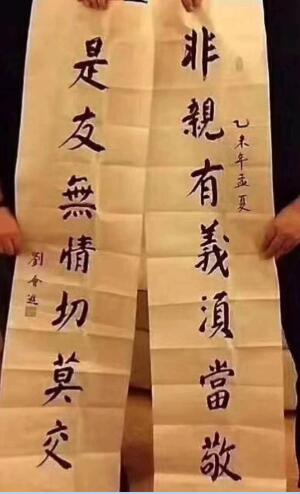 非親有義須當敬
乙未年孟夏
是友無情切莫交
劉會進